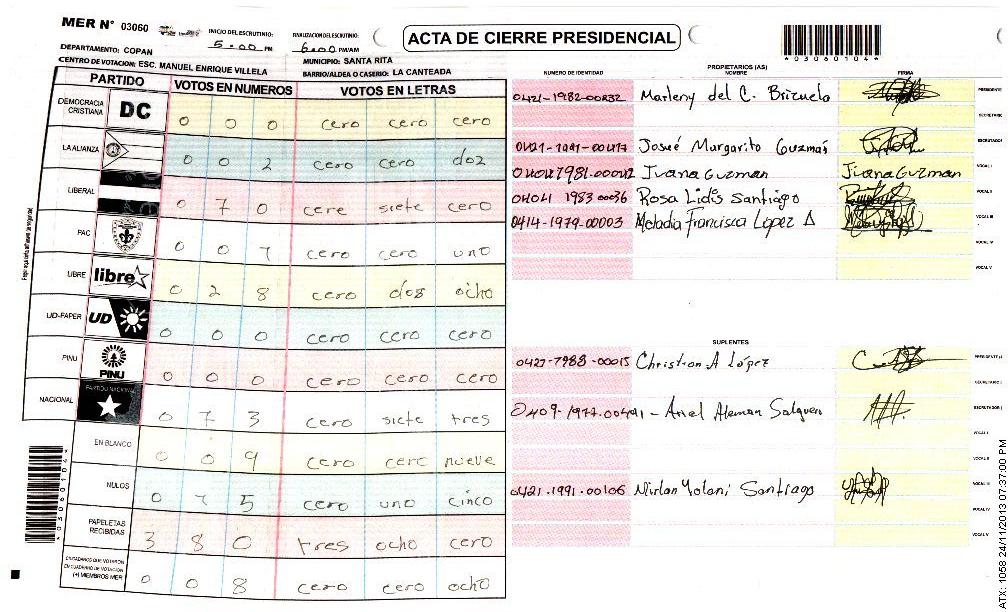 MER N° 03060
INICIO DEL ESCRUTINIO: 5:00 PM
FINALIZACION DEL ESCRUTINIO: 6:00 PM/AM
ACTA DE CIERRE PRESIDENCIAL
*03060104*
DEPARTAMENTO: COPAN
MUNICIPIO: SANTA RITA
CENTRO DE VOTACION: ESC. MANUEL ENRIQUE VILLELA
BARRIO/ALDEA O CASERIO: LA CANTEADA
PARTIDO VOTOS EN NUMEROS VOTOS EN LETRAS
DEMOCRACIA CRISTIANA DC 0 0 0 cero cero cero
LA ALIANZA 0 0 2 cero cero dos
LIBERAL 0 7 0 cere siete cero
PAC 0 0 1 cero cero uno
LIBRE libre 0 2 8 cero dos ocho
UD-FAPER UD 0 0 0 cero cero cero
PINU PINU 0 0 0 cero cero cero
NACIONAL PARTIDO NACIONAL 0 7 3 cero siete tres
EN BLANCO 0 0 9 cero cero nueve
NULOS 0 1 5 cero uno cinco
PAPELETAS RECIBIDAS 3 8 0 tres ocho cero
CIUDADANOS QUE VOTARON
EN CUADERNO DE VOTACION
(+) MIEMBROS MER 0 0 8 cero cero ocho
*03060104*
PROPIETARIOS (AS)
NUMERO DE IDENTIDAD NOMBRE FIRMA
Marleny del C. Brizuela PRESIDENTE
SECRETARIO
Josué Margarito Guzmán ESCRUTADOR
Juana Guzman Juana Guzman VOCAL I
Rosa Lidis Santiago VOCAL II
0414-1979-00003 Francisca López VOCAL III
VOCAL IV
VOCAL V
SUPLENTES
Christian A López PRESIDENTE
SECRETARIO
Ariel Aleman ESCRUTADOR
VOCAL I
VOCAL II
0421-1991-00106 Santiago VOCAL III
VOCAL IV
VOCAL V
ATX: 1058 24/11/2013 07:37:00 PM